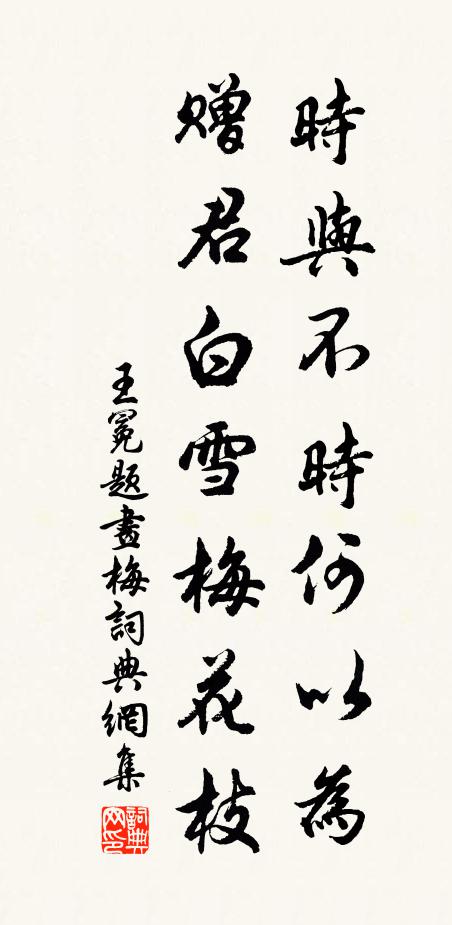 時與不時何以為
贈君白雪梅花枝
王冕題畫梅詞典網集
詞典網印